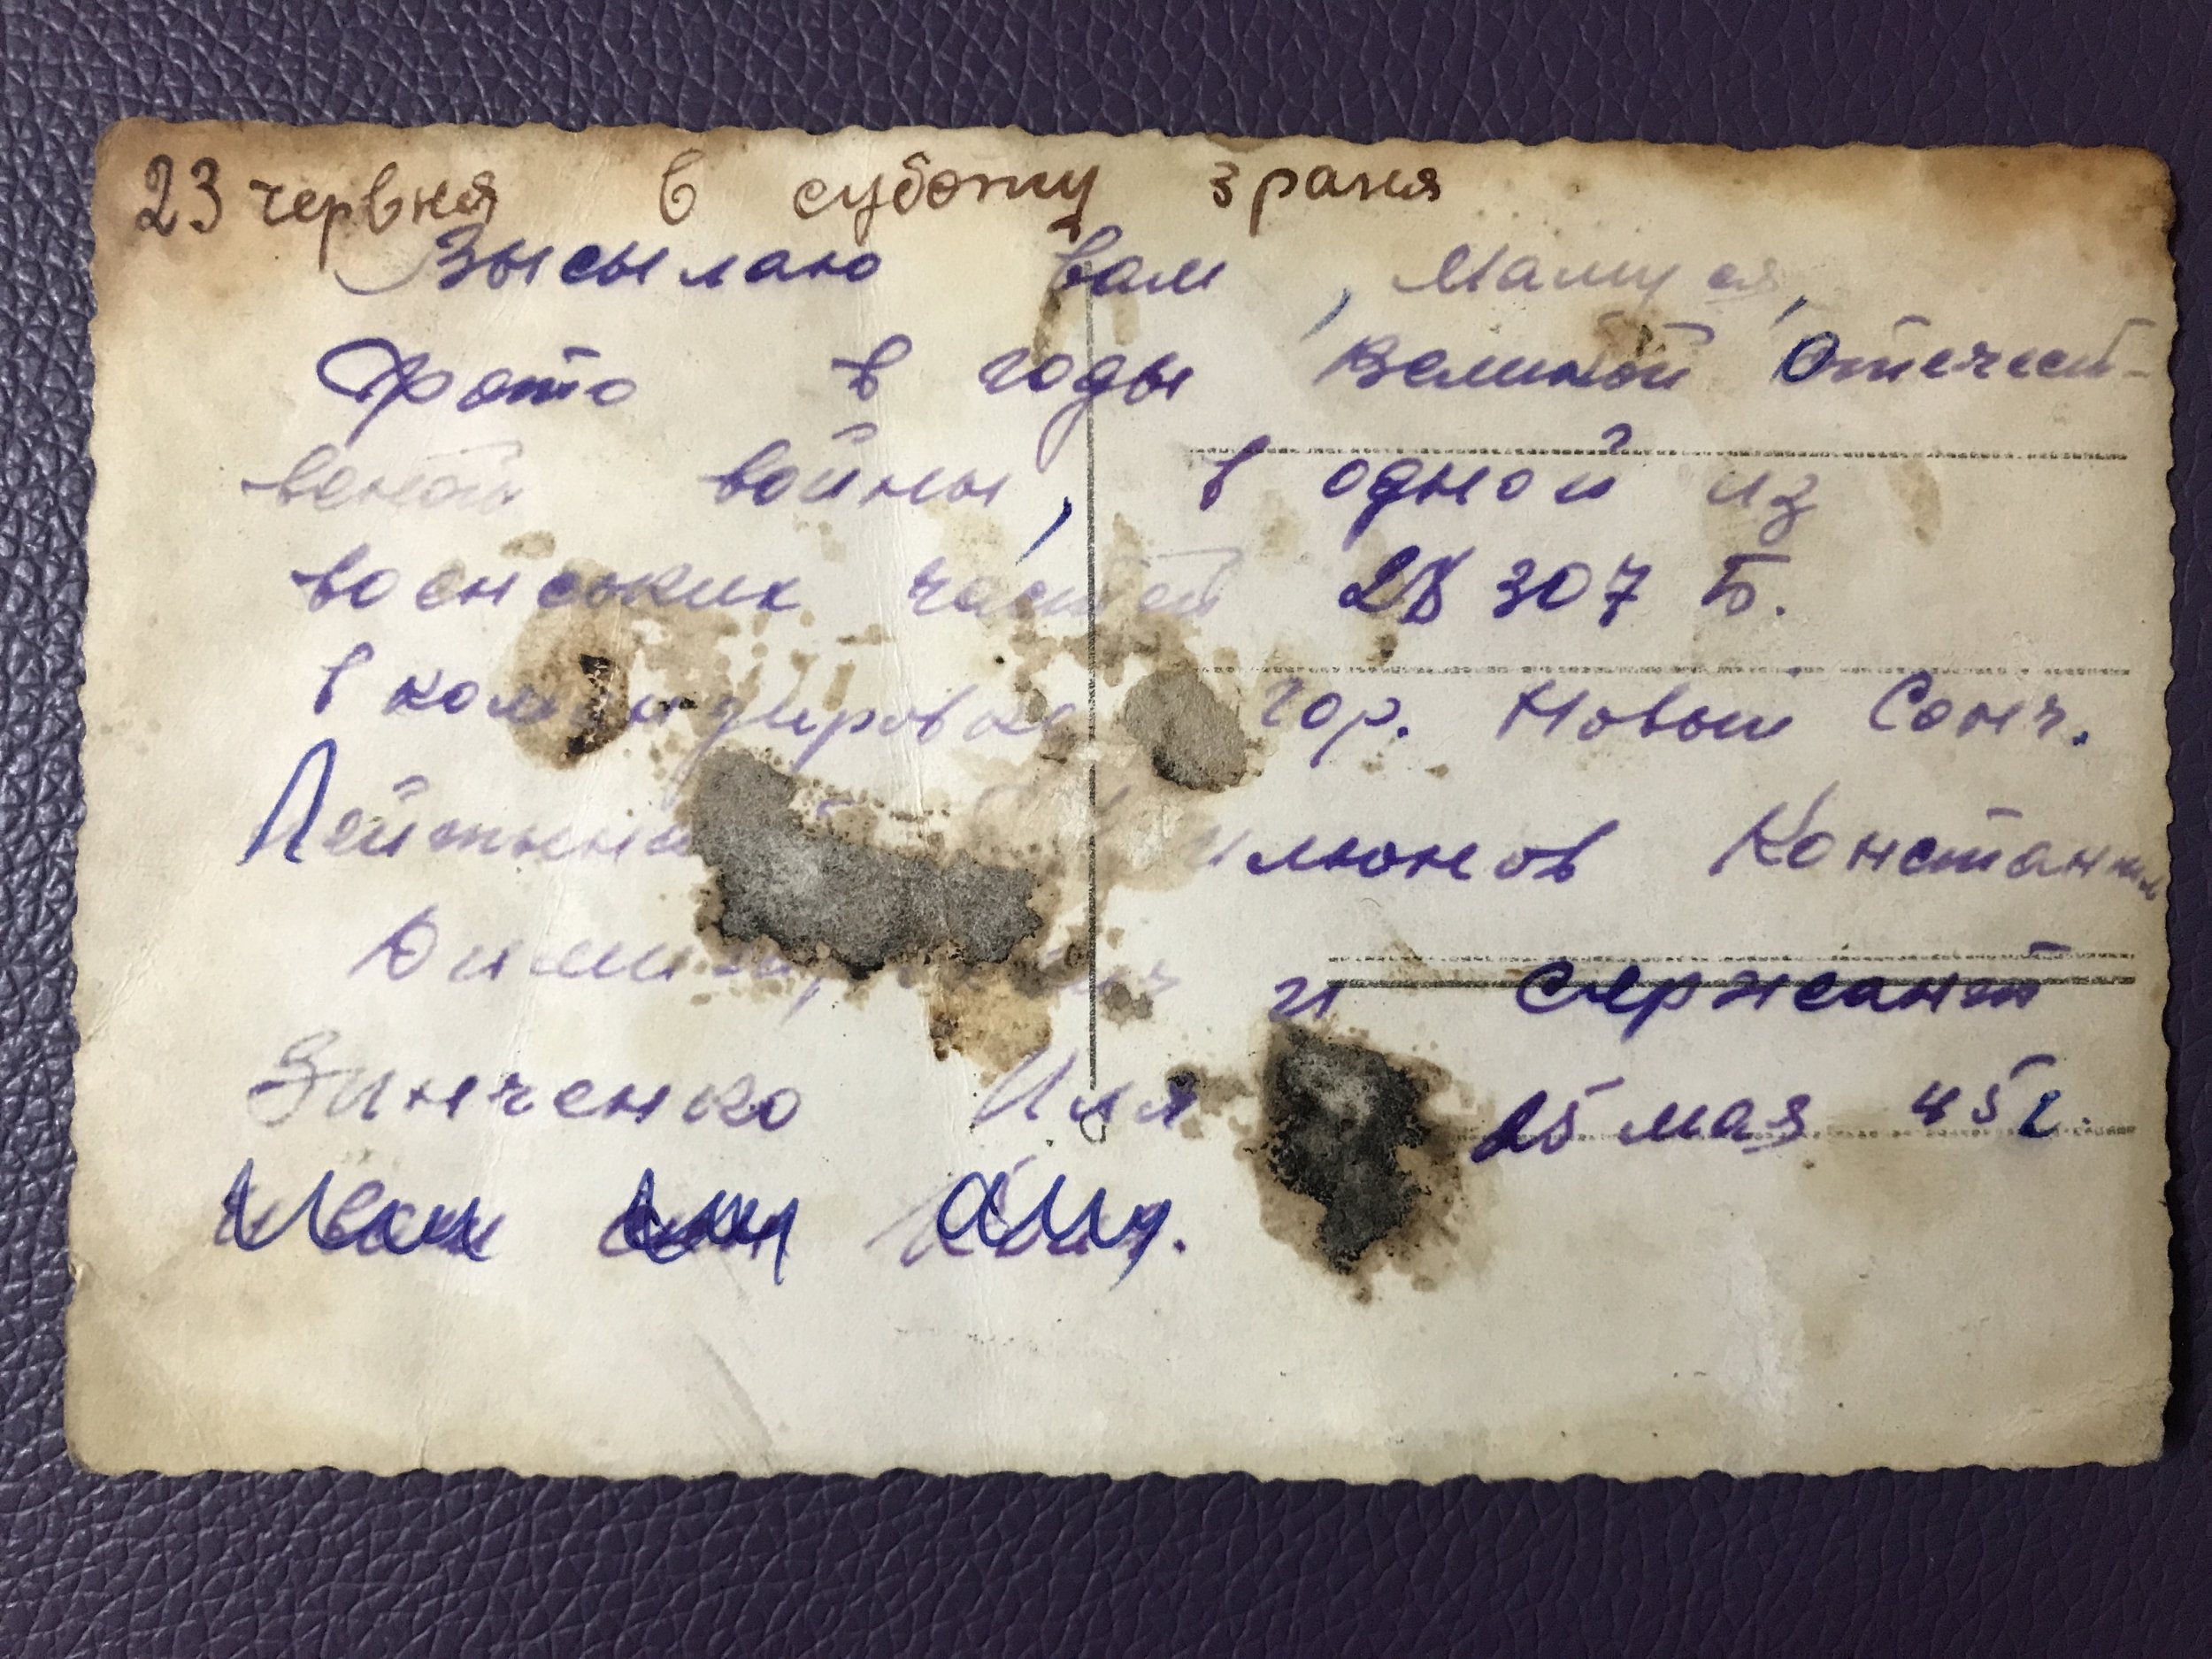 23 червня в суботу зрання
Высылаю вам, Мамуся,
фото в годы Великой Отечест-
веной войны, в одной из
воєнських частей 28307 Б.
в командировке гор. Новый Сонч.
Лейтенант Константин
Димитриевич и Сержант
Зинченко Иля 25 мая 45 г.